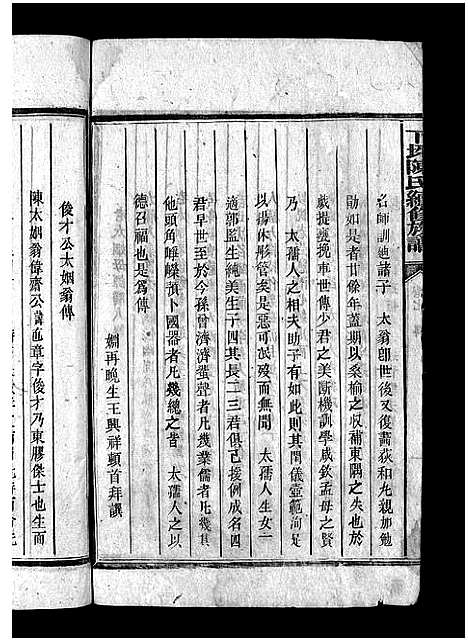 名師訓廸諸子　太翁卽世後又復畫荻和丸親加勉
勖如是者廿餘年蓋期以桑榆之收補東隅之失也於
戲提甕挽車世傳少君之美斷機訓學咸欽孟母之賢
乃　太孺人之相夫助子有如此其閫儀壼範洵足
以揚休彤管矣是惡可聽其歿而無聞　太孺人生女一
適郭監生純美生子四其長二三君俱已援例成名四
君早世至於今孫曾濟濟蜚聲者凡幾業儒者凡幾其
他頭角崢嶸預卜國器者凡幾總之皆　太孺人之以
德召福也是爲傳
姻再晚生王興祥頓首拜譔
俊才公太姻翁傳
陳太姻翁偉齋公諱也章字俊才乃東膠傑士也生而
陳氏續修族譜